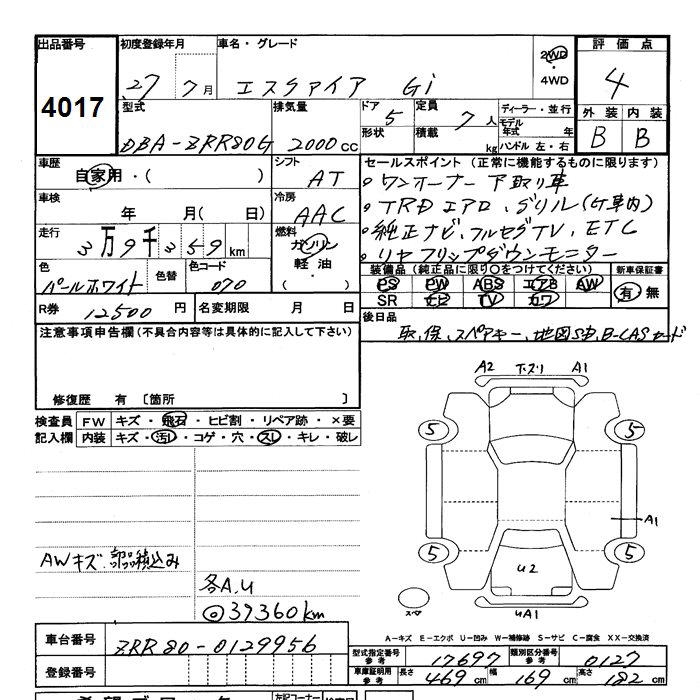 出品番号 初度登録年月 車名・グレード 2WD 評価点
4017 27 7月 エスクァイア Gi 4WD 4
型式 排気量 ドア 5 定員 7人 ディーラー・並行 外装 内装
DBA-ZRR80G 2000cc 形状 積載 kg モデル年式 年 ハンドル 左・右 B B
車歴 自家用・( ) シフト AT
セールスポイント(正常に機能するものに限ります)
。ワンオーナー下取り車
車検 年 月( 日) 冷房 AAC
。TRDエアロ、グリル(ケ車内)
走行 3万9千359km 燃料 ガソリン 軽油 ( )
。純正ナビ、フルセグTV、ETC
。リヤフリップダウンモニター
色 パールホワイト 色替 色コード 070
装備品(純正品に限り○をつけてください) 新車保証書
PS PW ABS エアB AW 有・無
SR ナビ TV カワ
R券 12500円 名変期限 月 日
後日品
取、保、スペアキー、地図SD、B-CASカード
注意事項申告欄(不具合内容等は具体的に記入して下さい)
修復歴 有 〔箇所 〕
検査員 FW キズ・飛石・ヒビ割・リペア跡・×要
記入欄 内装 キズ・汚レ・コゲ・穴・スレ・キレ・破レ
A2 下スリ A1
5 5
A1
AWキズ 部品積込み
5 5
U2
各A,U
◎39360km
スペア UA1
A-キズ E-エクボ U-凹み W-補修跡 S-サビ C-腐食 XX-交換済
車台番号 ZRR80-0129956
型式指定番号 参考 17697 類別区分番号 参考 0127
登録番号
車庫証明用 参考 長さ 469cm 幅 169cm 高さ 182cm